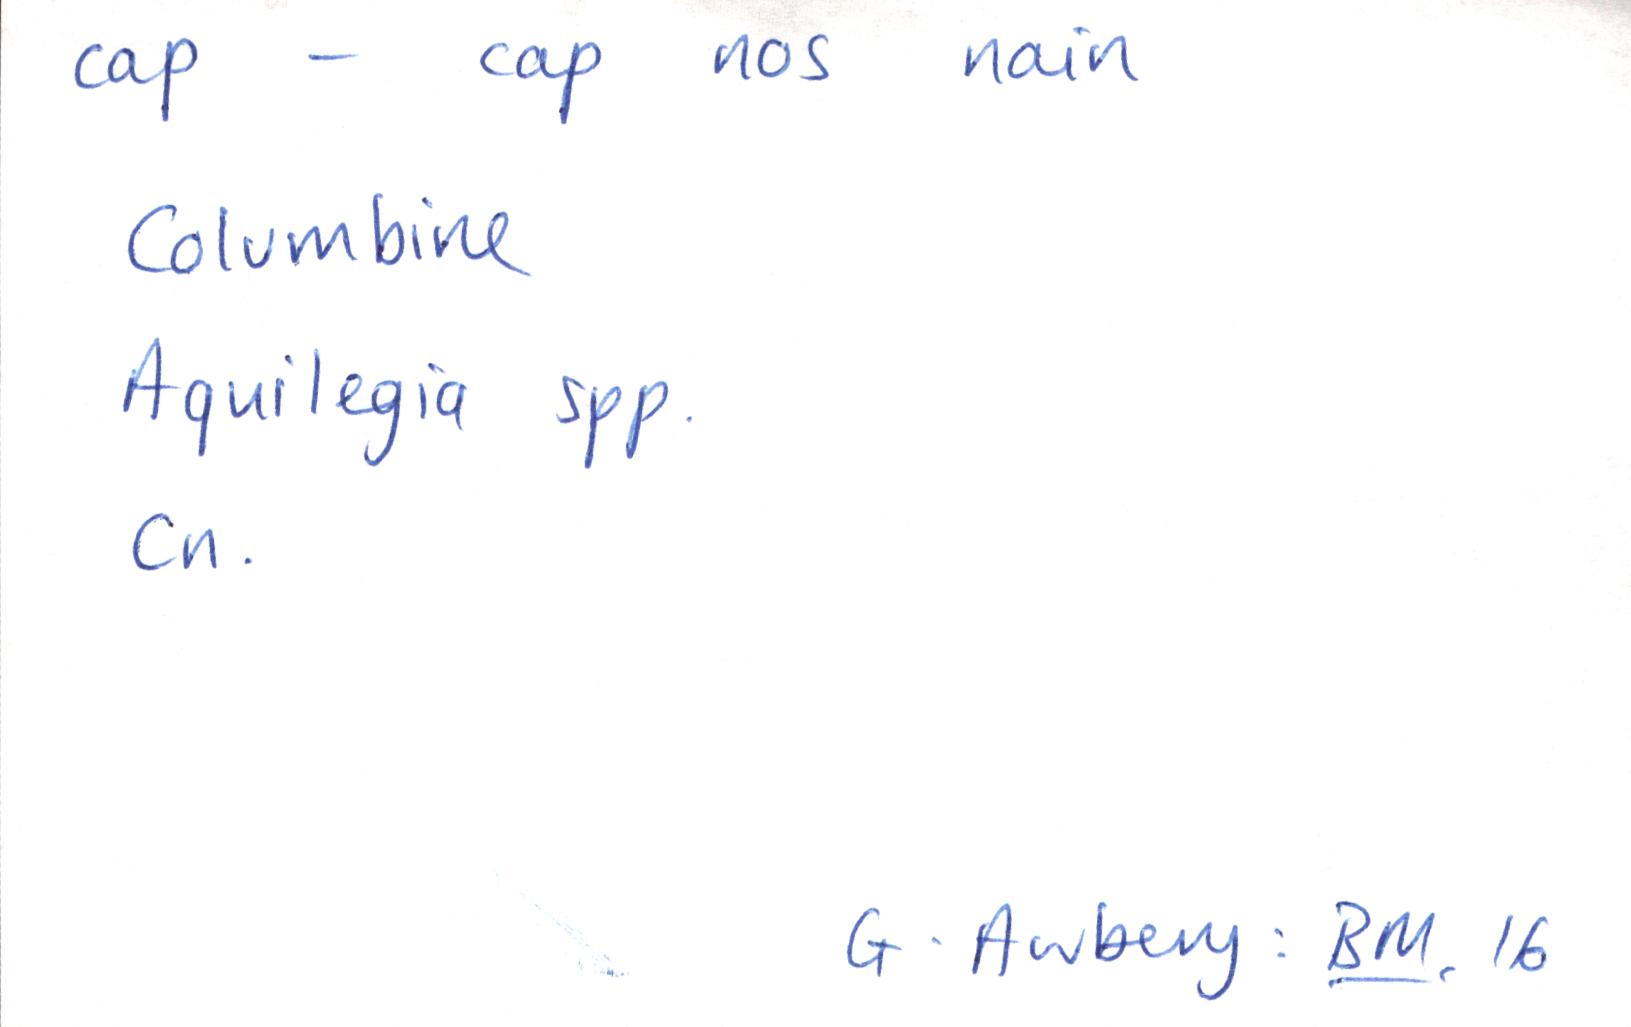 cap - cap nos nain
Columbine
Aquilegia spp.
Cn.
G. Awbery: BM, 16